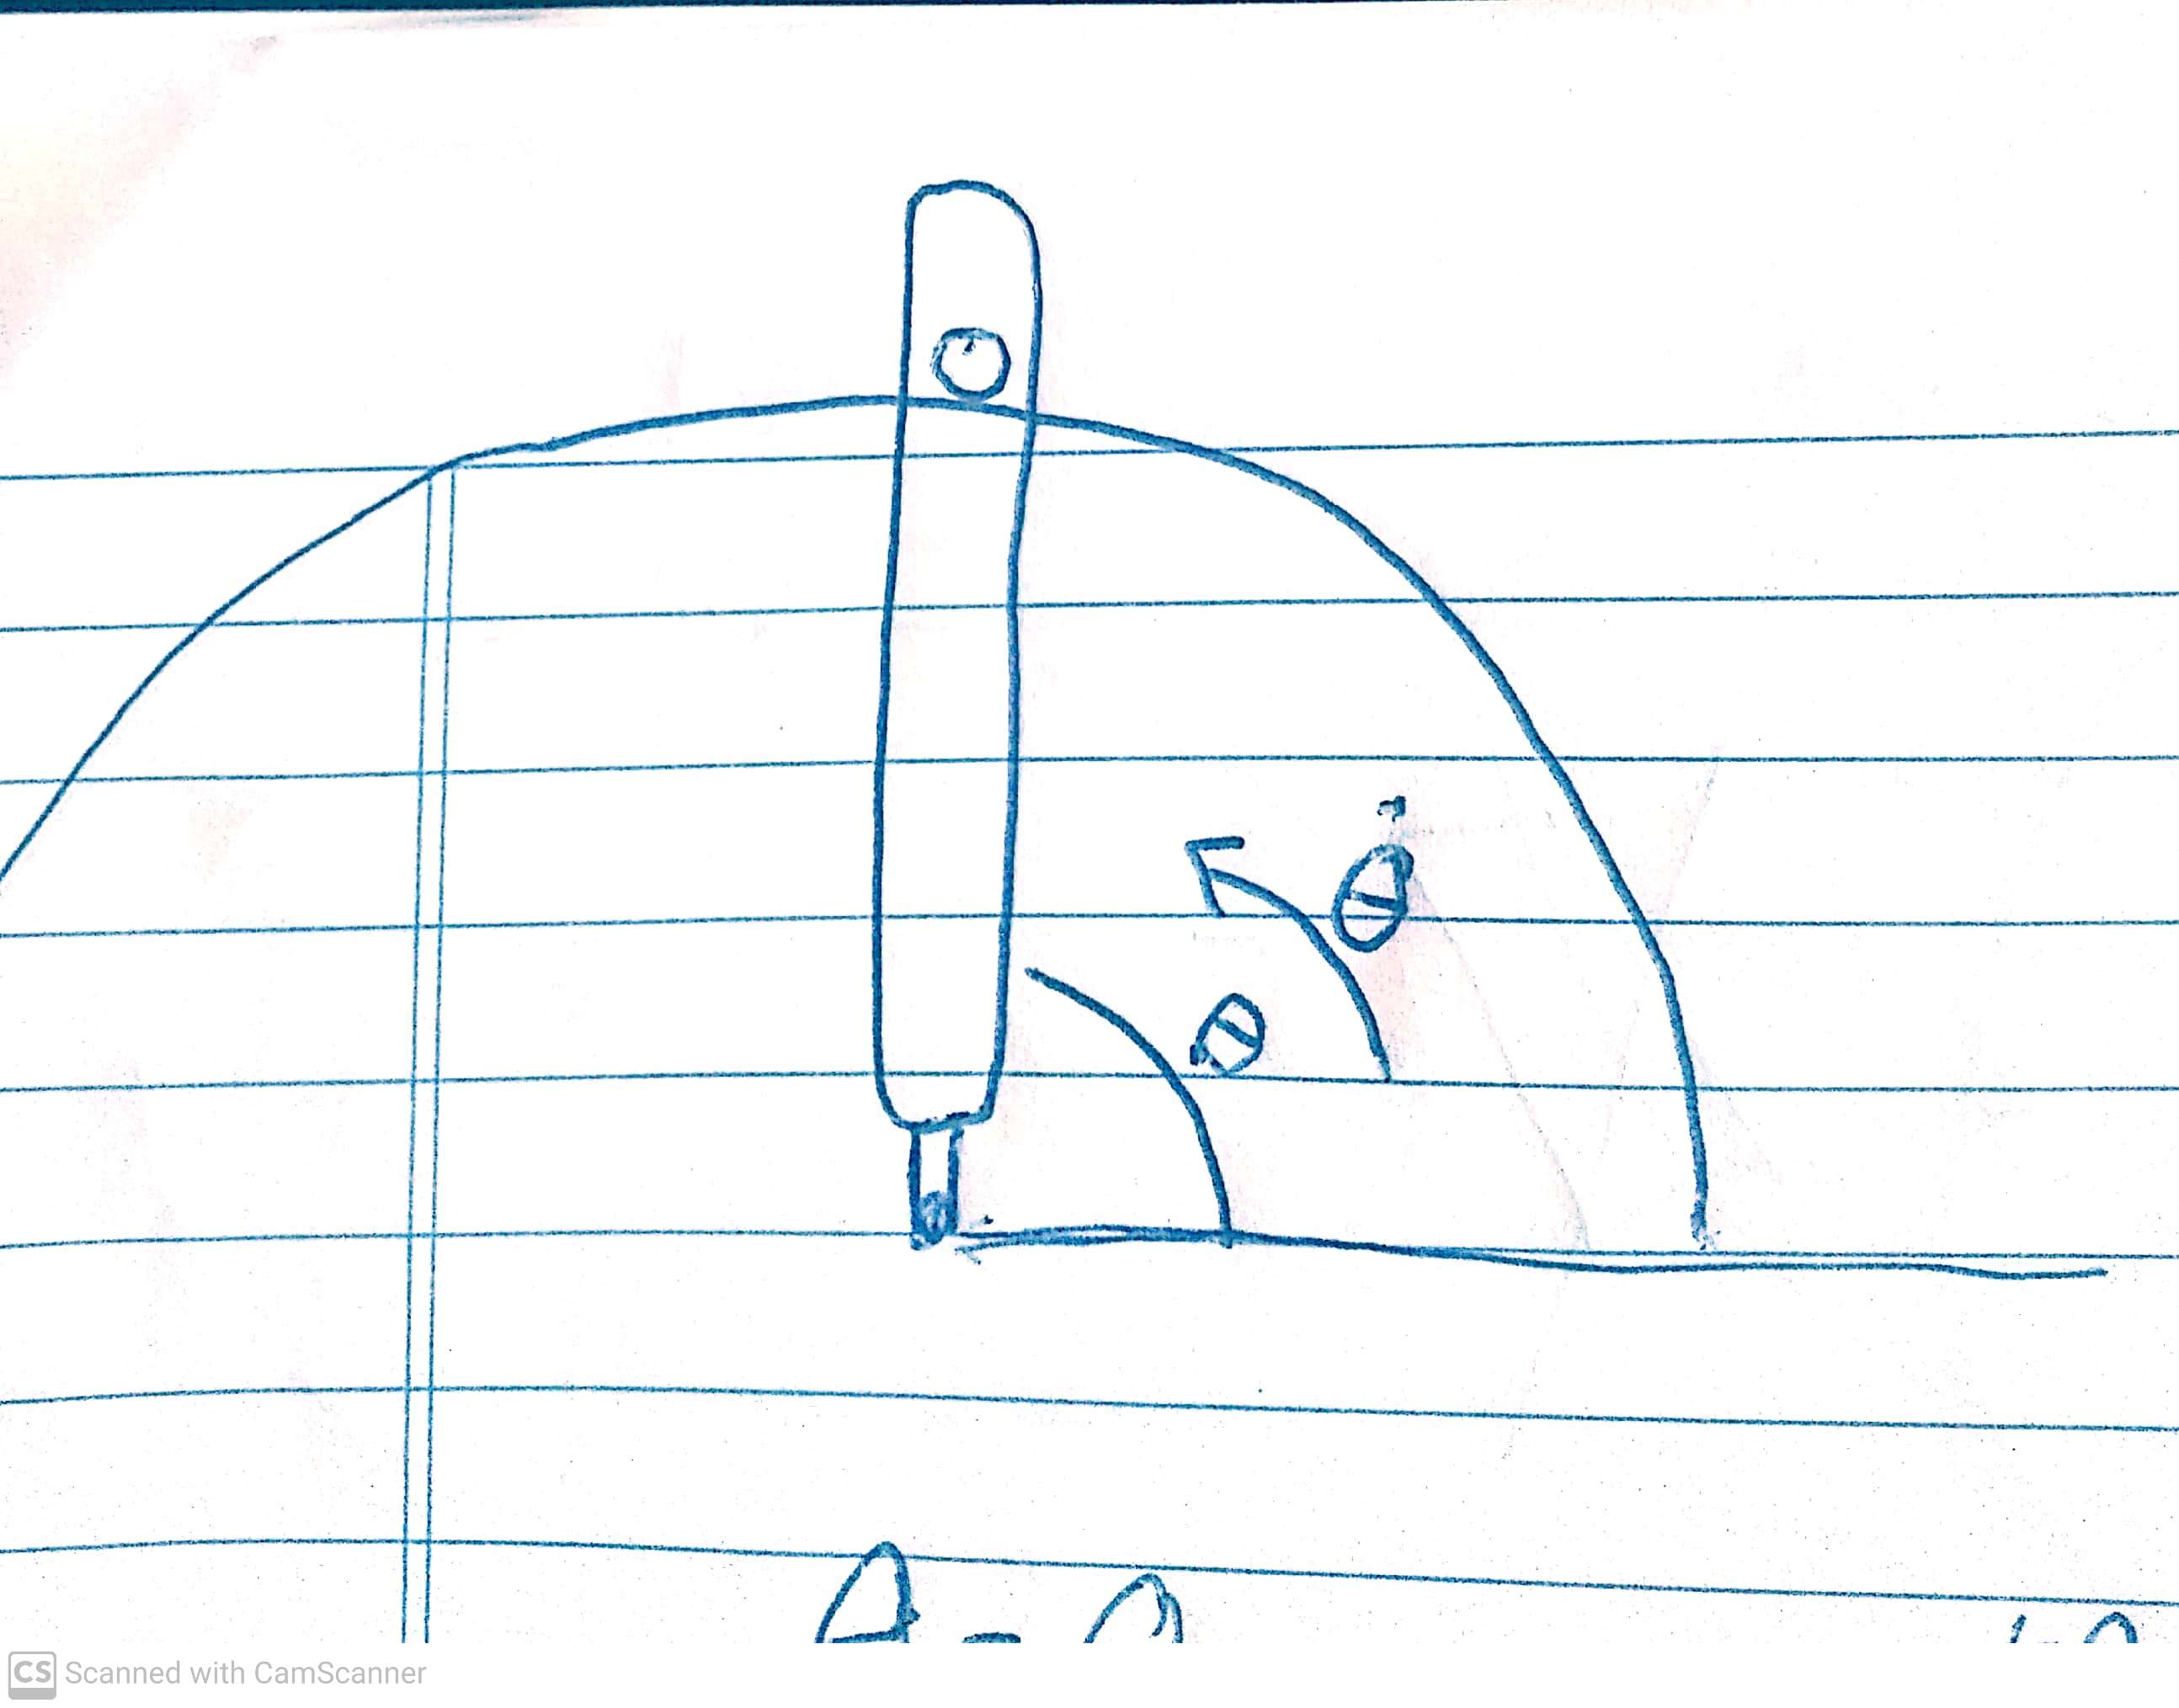 θ̇
θ
CS Scanned with CamScanner